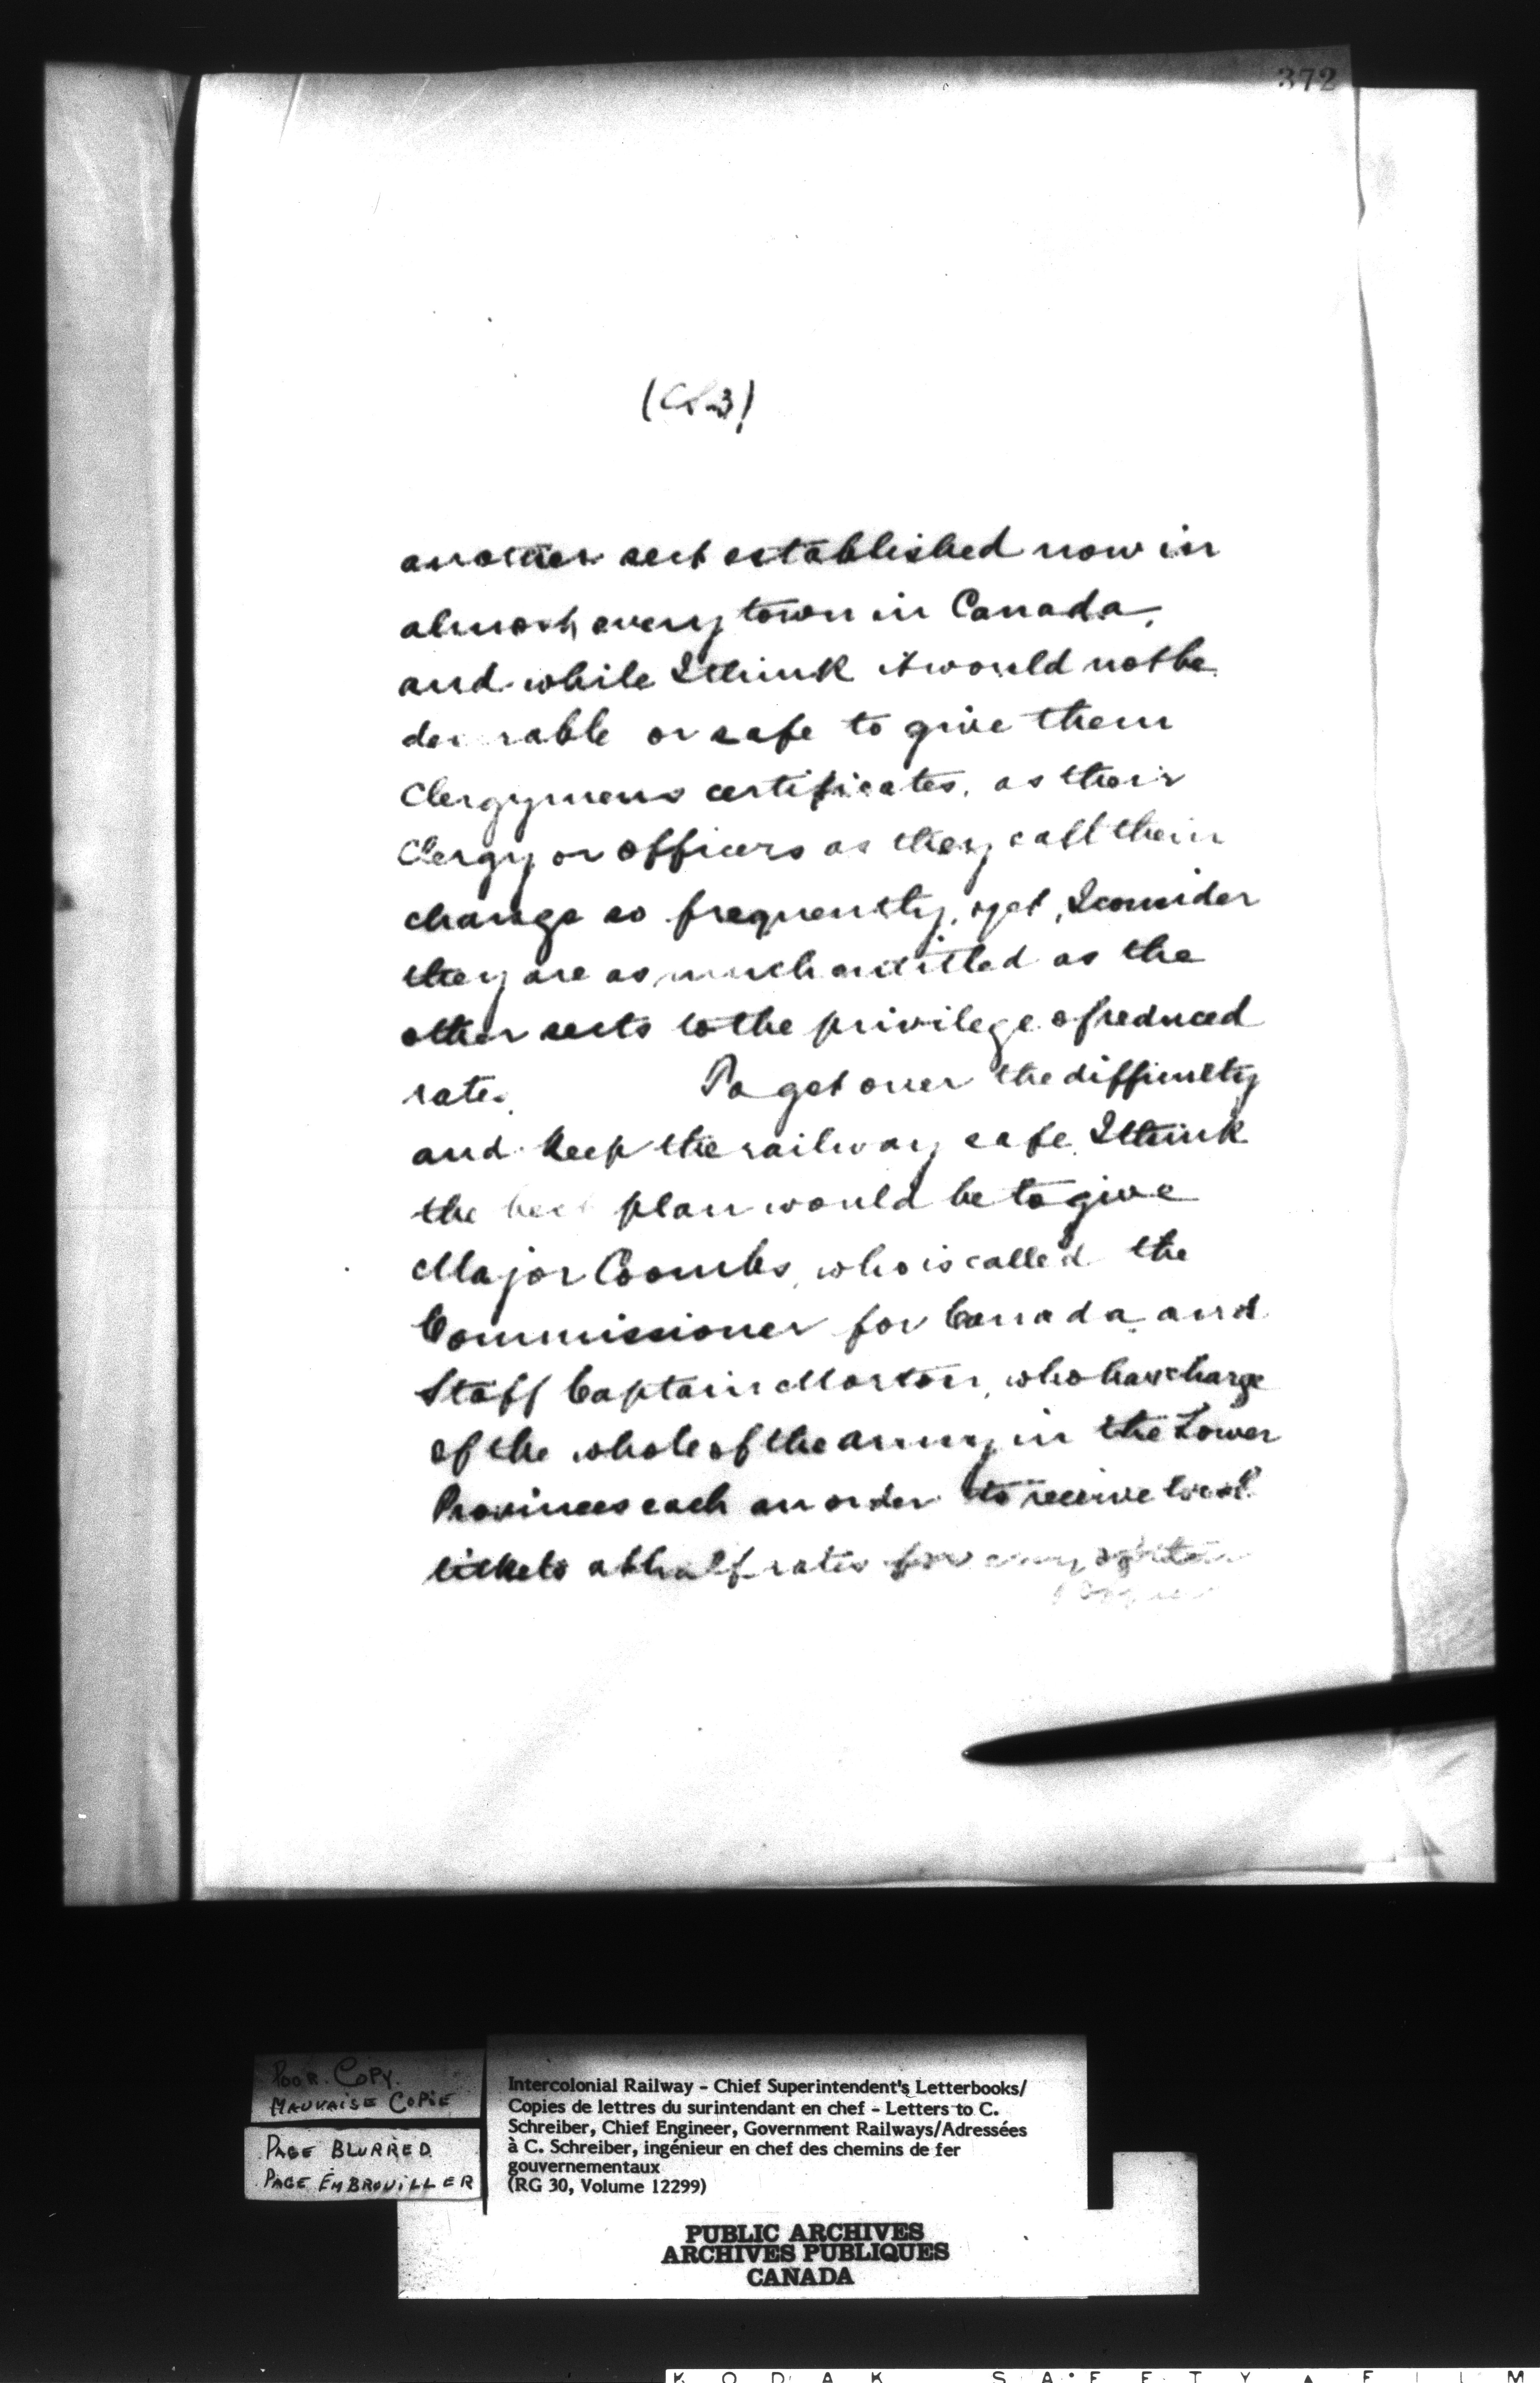 372
another sect established now in
almost every town in Canada,
and while I think it would not be
desirable or safe to give them
Clergymens certificates, as their
Clergy or Officers as they call them
change so frequently, yet, I consider
they are as much entitled as the
other sects to the privilege of reduced
rates. To get over the difficulty
and keep the railway safe I think
the best plan would be to give
Major Coombs, who is called the
Commissioner for Canada and
Staff Captain Morton, who has charge
of the whole of the army in the Lower
Provinces each an order to receive local
tickets at half rates for any
POOR. COPY.
MAUVAISE COPIE
PAGE BLURRED
PAGE EMBROUILLER
Intercolonial Railway - Chief Superintendent's Letterbooks/
Copies de lettres du surintendant en chef - Letters to C.
Schreiber, Chief Engineer, Government Railways/Adressées
à C. Schreiber, ingénieur en chef des chemins de fer
gouvernementaux
(RG 30, Volume 12299)
PUBLIC ARCHIVES
ARCHIVES PUBLIQUES
CANADA
KODAK SAFETY FILM